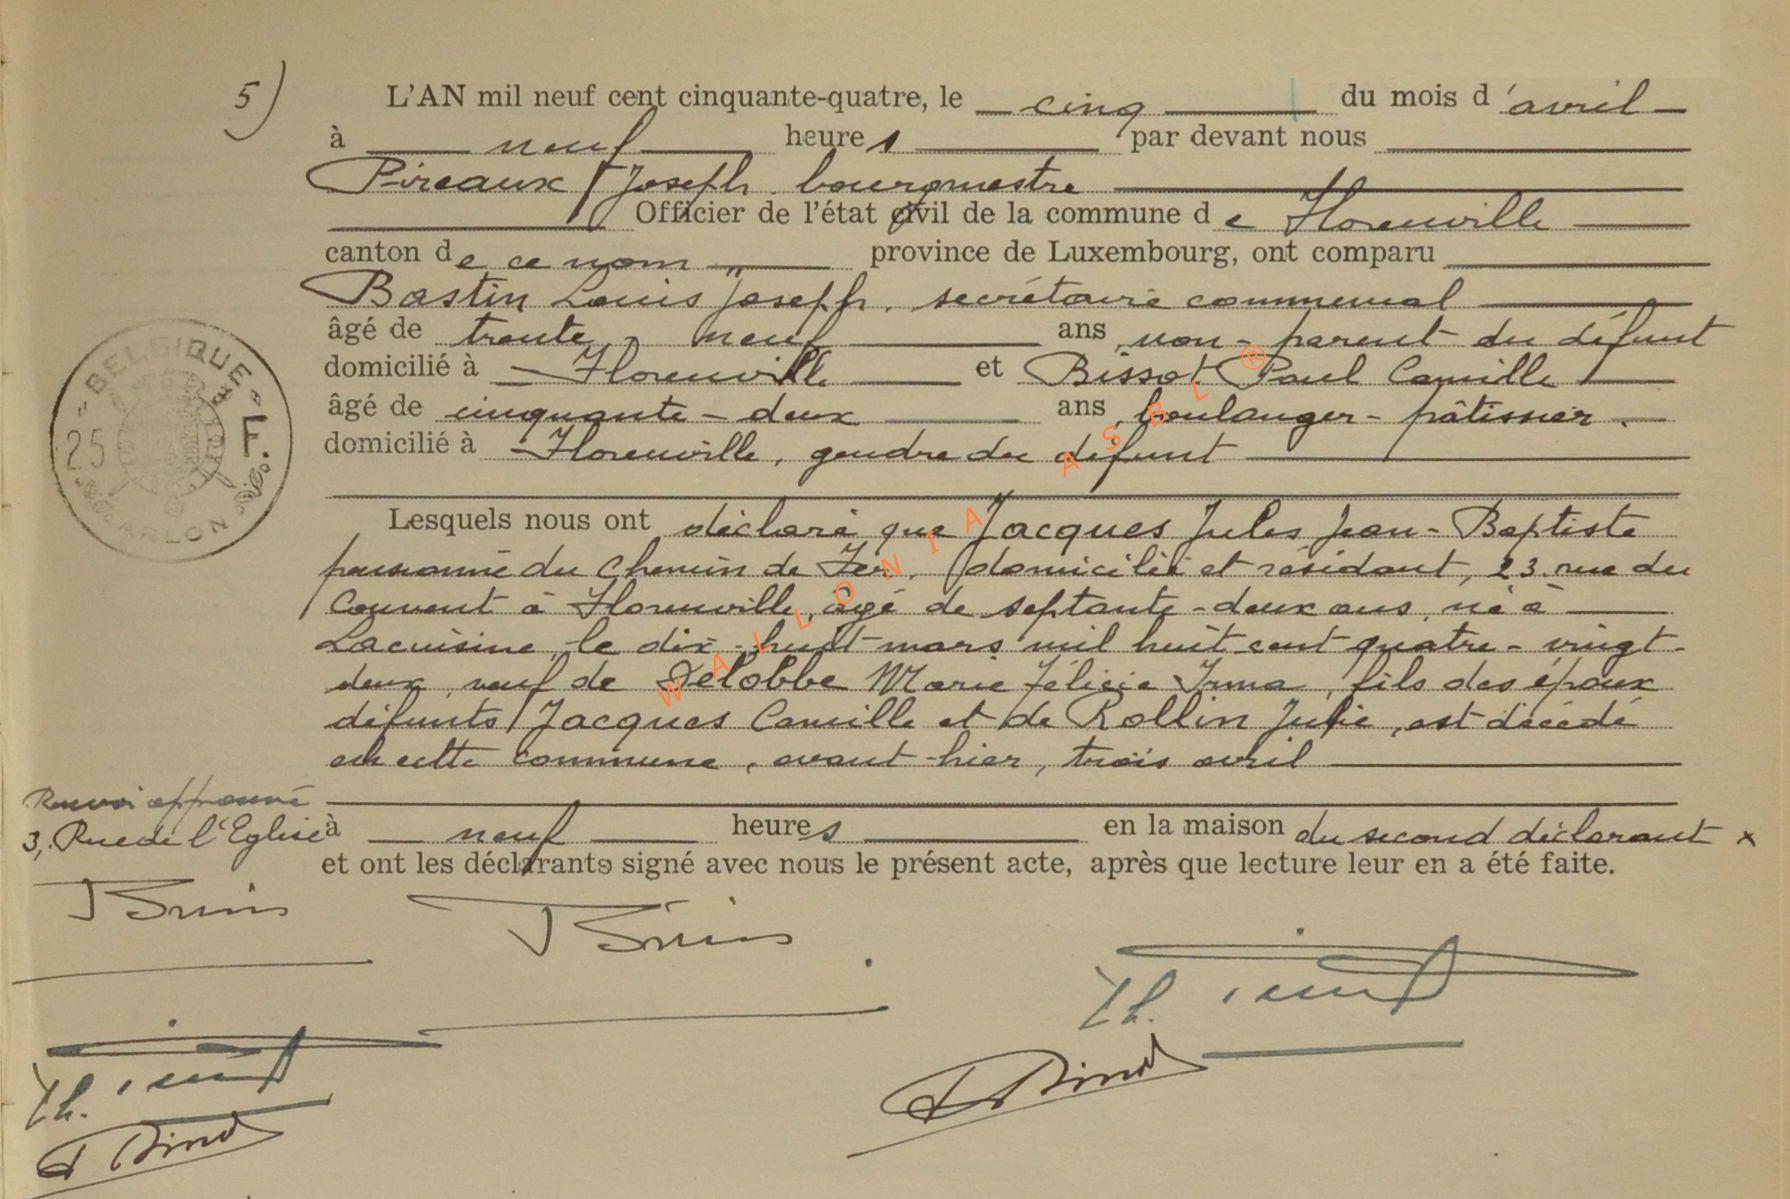 5)
L'AN mil neuf cent cinquante-quatre, le cinq du mois d'avril
à neuf heures par devant nous
Pireaux Joseph bourgmestre
Officier de l'état civil de la commune de Florenville
canton de ce nom province de Luxembourg, ont comparu
Bastin Louis Joseph, secrétaire communal
âgé de trente neuf ans, non-parent du défunt
domicilié à Florenville et Bissot Paul Camille
âgé de cinquante-deux ans, boulanger-pâtissier,
domicilié à Florenville, gendre du défunt
BELGIQUE
25 F.
ARLON
Lesquels nous ont déclaré que Jacques Jules Jean-Baptiste
pensionné du Chemin de Fer, domicilié et résidant, 23 rue du
Couvent à Florenville, âgé de septante-deux ans, né à
Lacuisine, le dix-huit mars mil huit cent quatre-vingt-
deux, veuf de Delobbe Marie Félicie Irma, fils des époux
défunts Jacques Camille et de Rollin Julie, est décédé
en cette commune, avant-hier, trois avril
Renvoi approuvé
3, Rue de l'Eglise
à neuf heures en la maison du second déclarant x
et ont les déclarants signé avec nous le présent acte, après que lecture leur en a été faite.
WALLONIA ASBL ®